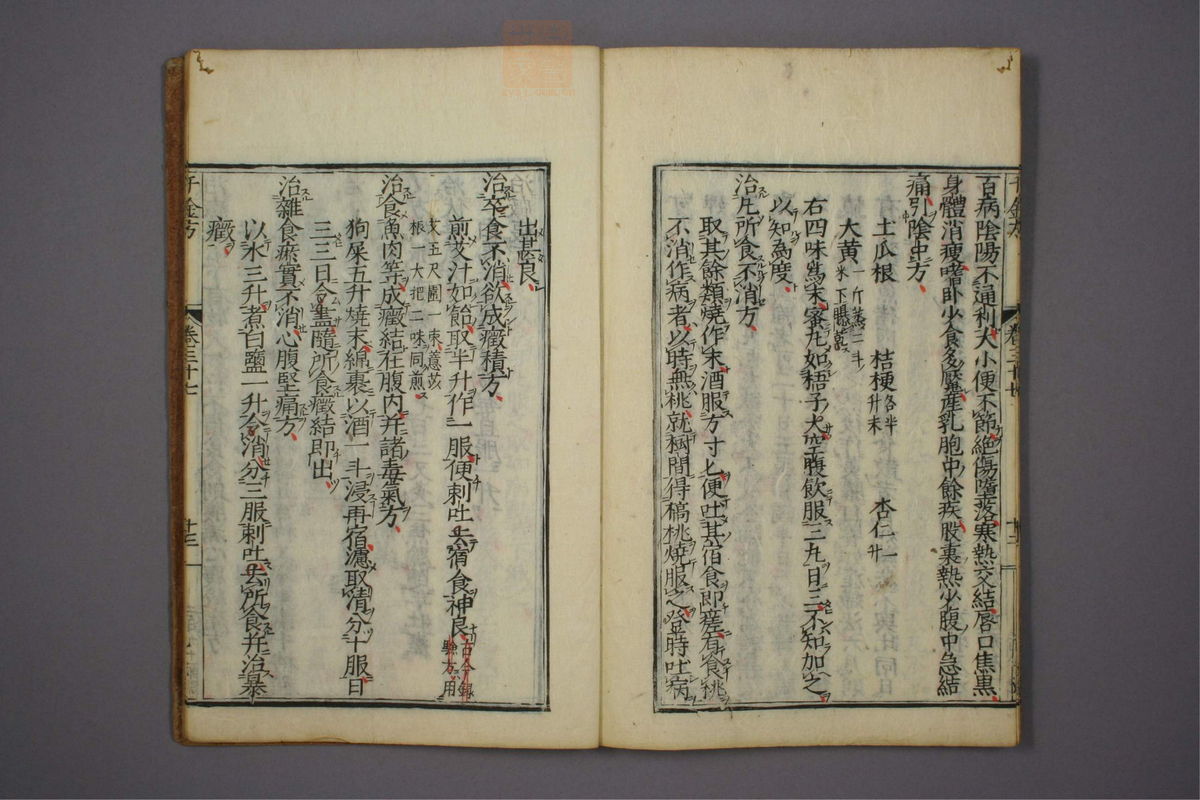 百病陰陽不通利大小便不節絕傷墮落寒熱交結唇口焦黑
身體消瘦嗜臥少食多魘產乳胞中餘疾股裏熱少腹中急結
痛引陰中方
土瓜根 桔梗各半升末 杏仁一升
大黃一斤蒸二斗米下曝乾
右四味為末蜜丸如梧子大空腹飲服三丸日三不知加之
以知為度
治凡所食不消方
取其餘類燒作末酒服方寸匕便吐甚宿食即瘥有食桃
不消作病者以時無桃就樹間得槁桃燒服之登時吐病
出甚良
治卒食不消欲成癥積方
煎艾汁如飴取半升作一服便刺吐去宿食神良古今錄驗方用
艾五尺圍一束薏苡根一大把二味同煎
治食魚肉等成癥結在腹內并諸毒氣方
狗屎五升燒末綿裹以酒一斗浸再宿濾取清分十服日
三三日令盡隨所食癥結即出
治雜食瘀實不消心腹堅痛方
以水三升煮白鹽一升令消分三服刺吐去所食并治暴
癥
千金方 卷三十七 十三